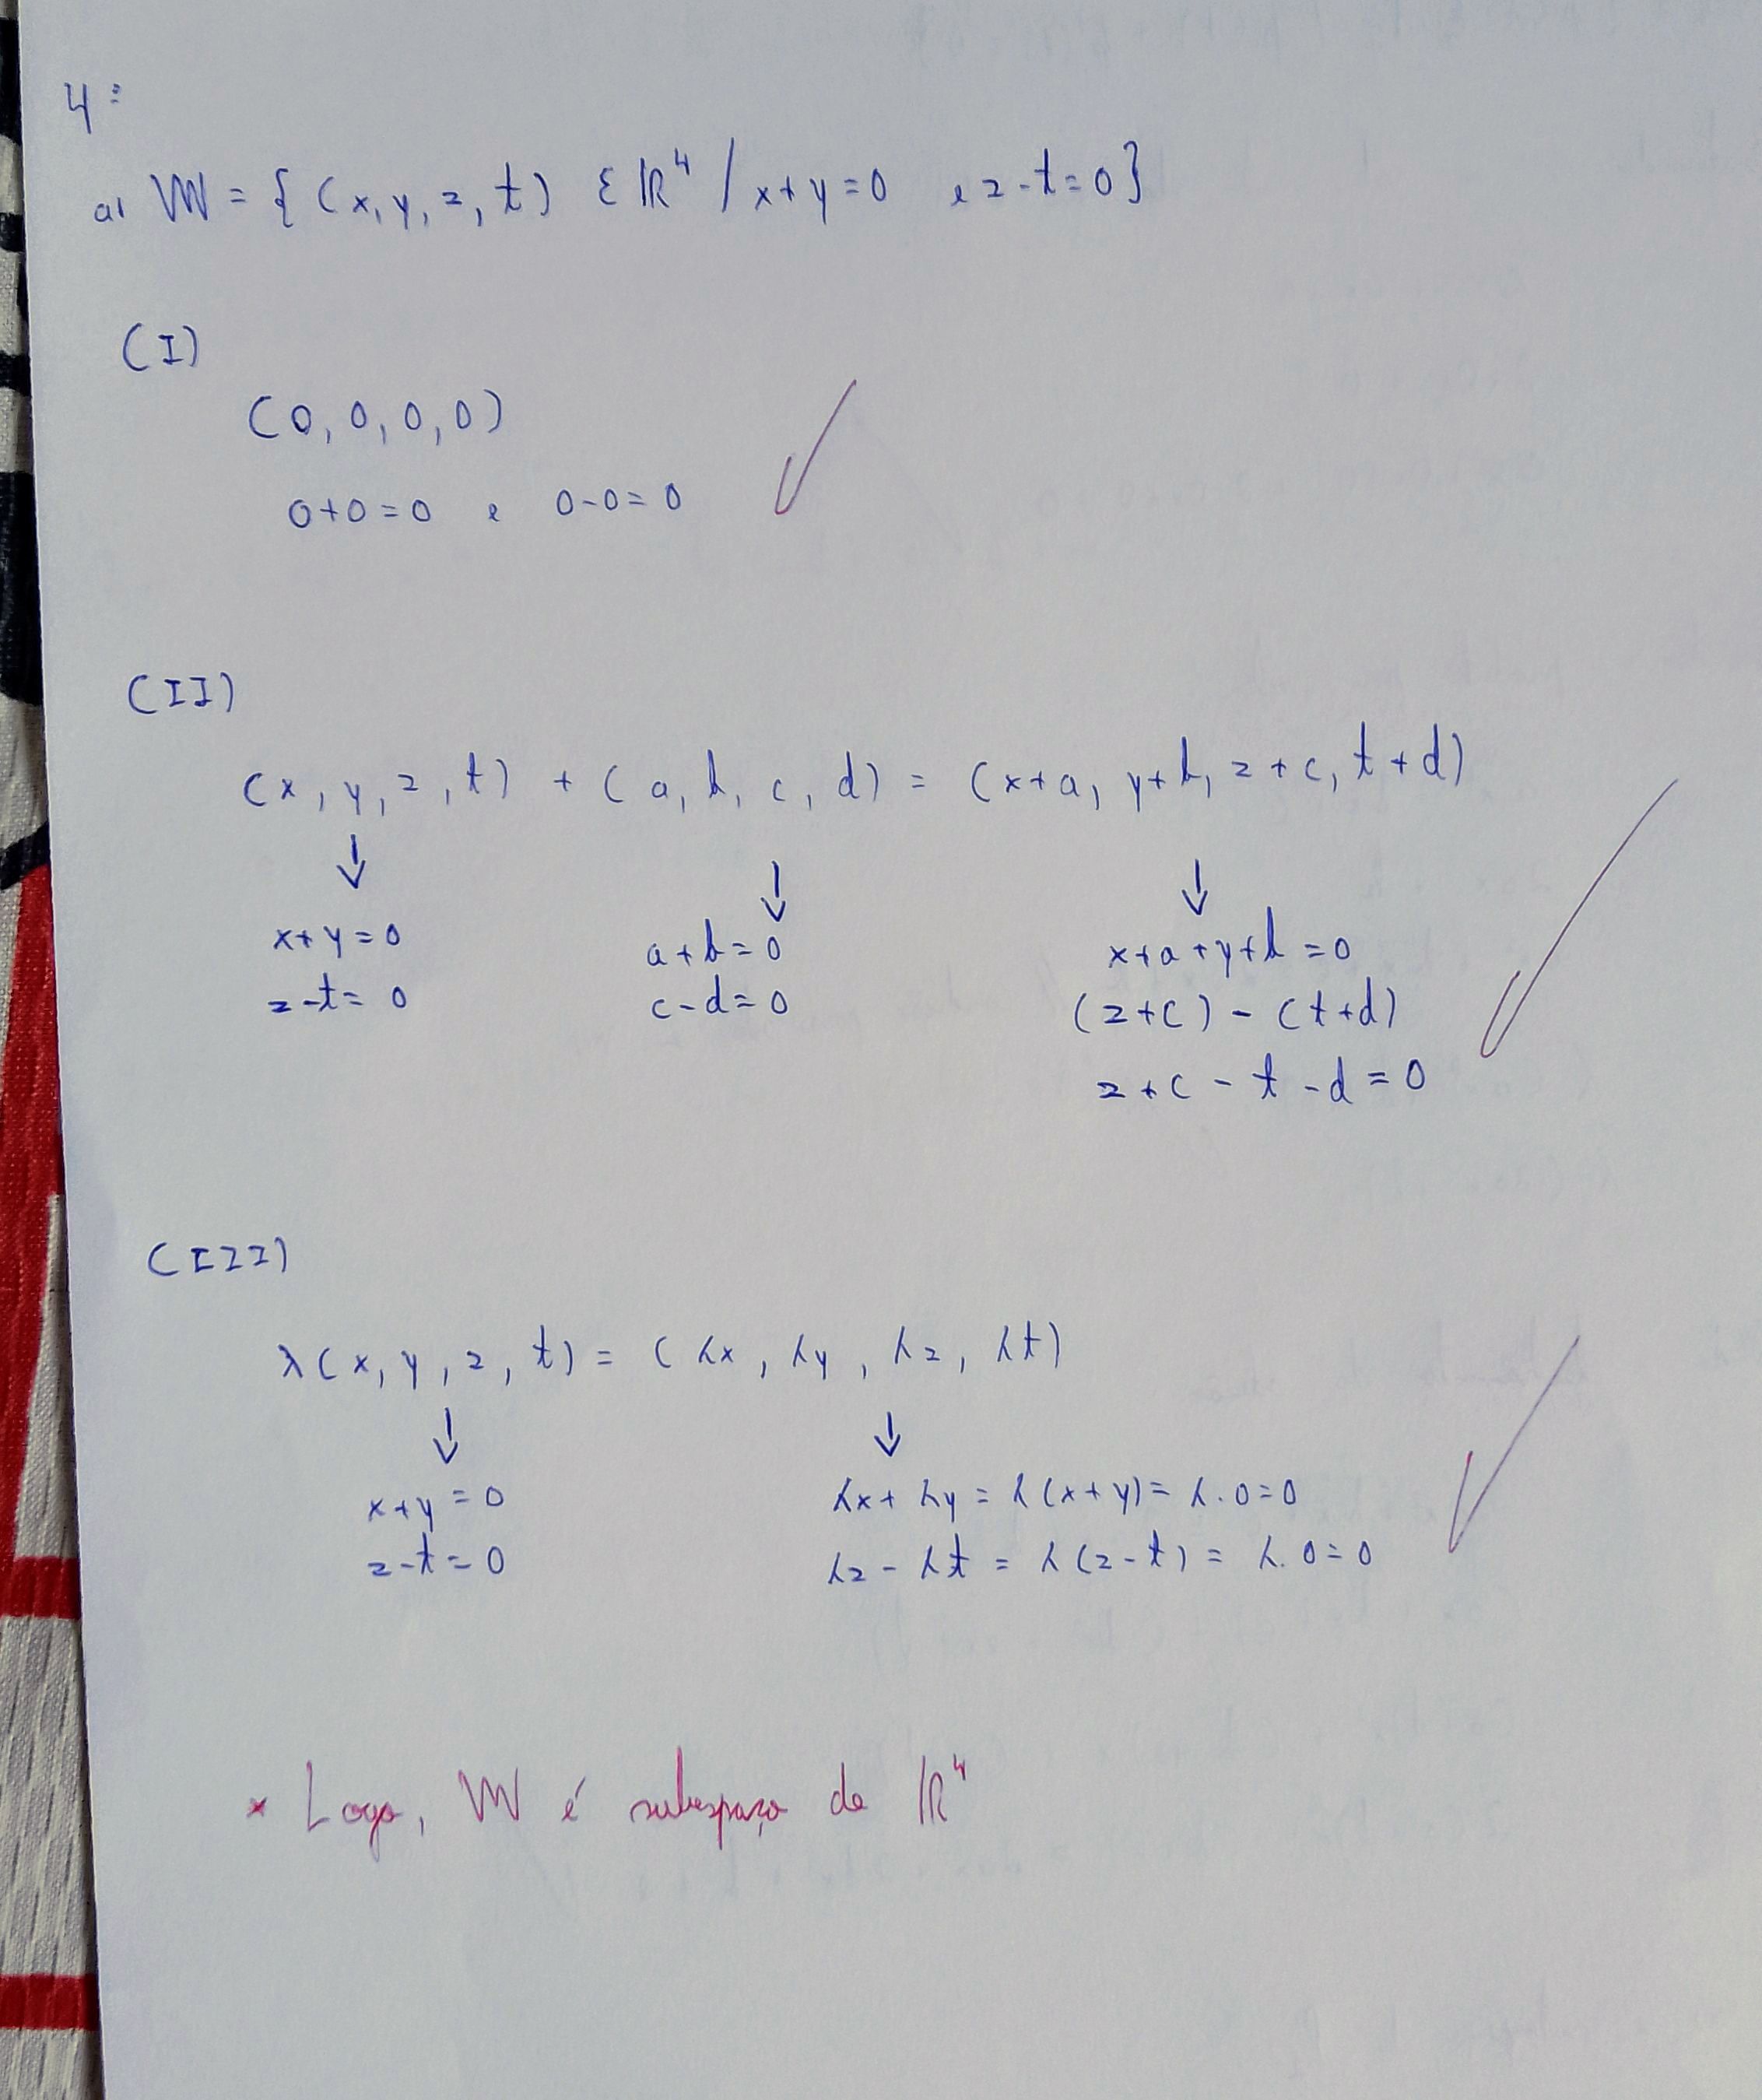 4:
a) W = { (x, y, z, t) ∈ ℝ⁴ / x+y=0 e z-t=0}
(I)
(0, 0, 0, 0)
0+0=0 e 0-0=0 ✓
(II)
(x, y, z, t) + (a, b, c, d) = (x+a, y+b, z+c, t+d)
↓ ↓ ↓
x+y=0 a+b=0 x+a+y+b=0
z-t=0 c-d=0 (z+c) - (t+d) ✓
z+c-t-d=0
(III)
λ(x, y, z, t) = (λx, λy, λz, λt)
↓ ↓
x+y=0 λx+λy = λ(x+y) = λ.0=0
z-t=0 λz-λt = λ(z-t) = λ.0=0 ✓
* Logo, W é subespaço de ℝ⁴